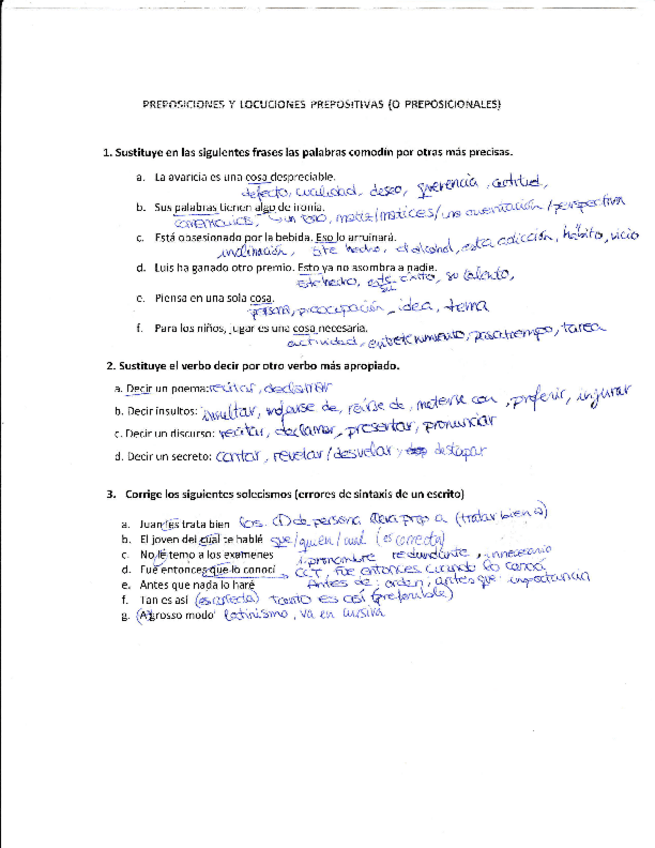 PREPOSICIONES Y LOCUCIONES PREPOSITIVAS (O PREPOSICIONALES)
1. Sustituye en las siguientes frases las palabras comodín por otras más precisas.
a. La avaricia es una cosa despreciable.
defecto, cualidad, deseo, querencia, actitud,
b. Sus palabras tienen algo de ironía.
un tono, matiz/matices/una orientación/perspectiva
c. Está obsesionado por la bebida. Eso lo arruinará.
inclinación, este hecho, el alcohol, esta adicción, hábito, vicio
d. Luis ha ganado otro premio. Esto ya no asombra a nadie.
este hecho, este éxito, su talento,
su
e. Piensa en una sola cosa.
persona, preocupación, idea, tema
f. Para los niños, jugar es una cosa necesaria.
actividad, entretenimiento, pasatiempo, tarea
2. Sustituye el verbo decir por otro verbo más apropiado.
a. Decir un poema: recitar, declamar
b. Decir insultos: insultar, mofarse de, reírse de, meterse con, proferir, injuriar
c. Decir un discurso: recitar, declamar, presentar, pronunciar
d. Decir un secreto: contar, revelar/desvelar, destapar
3. Corrige los siguientes solecismos (errores de sintaxis de un escrito)
a. Juan les trata bien los. CD de persona lleva prep a (tratar bien a)
b. El joven del cual te hablé que/quien/cual (es correcta)
c. No le temo a los exámenes pronombre redundante, innecesario
d. Fue entonces que lo conocí CCT, Fue entonces cuando lo conocí
e. Antes que nada lo haré Antes de: orden; antes que: importancia
f. Tan es así (es correcta) tanto es así (preferible)
g. (A) grosso modo latinismo, va en cursiva